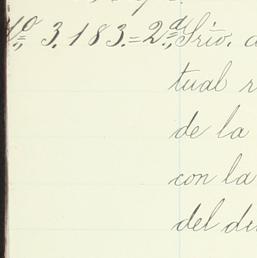 Nº 3.183.=2ª Srío.
tual
de la
con la
del